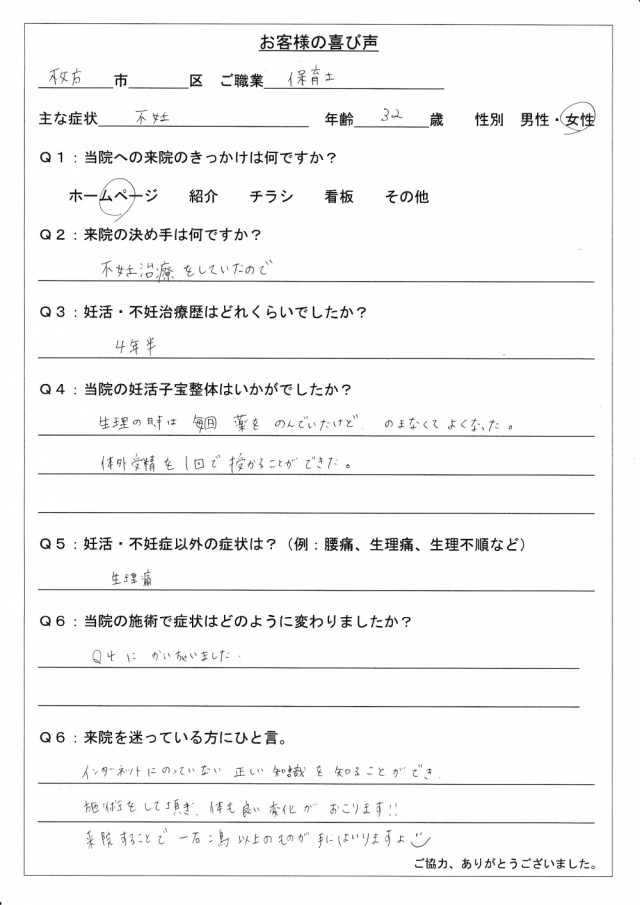 お客様の喜び声
枚方 市 区 ご職業 保育士
主な症状 不妊 年齢 32 歳 性別 男性・女性
Q1：当院への来院のきっかけは何ですか？
ホームページ 紹介 チラシ 看板 その他
Q2：来院の決め手は何ですか？
不妊治療をしていたので
Q3：妊活・不妊治療歴はどれくらいでしたか？
4年半
Q4：当院の妊活子宝整体はいかがでしたか？
生理の時は 毎回 薬を のんでいたけど、のまなくて よくなった。
体外受精を1回で授かることができた。
Q5：妊活・不妊症以外の症状は？（例：腰痛、生理痛、生理不順など）
生理痛
Q6：当院の施術で症状はどのように変わりましたか？
Q4に かいちゃいました.
Q6：来院を迷っている方にひと言。
インターネットにのっていない 正しい 知識を 知ることができ、
施術をして頂き、体も良い変化が おこります!!
来院することで 一石二鳥以上のものが 手にはいりますよ
ご協力、ありがとうございました。